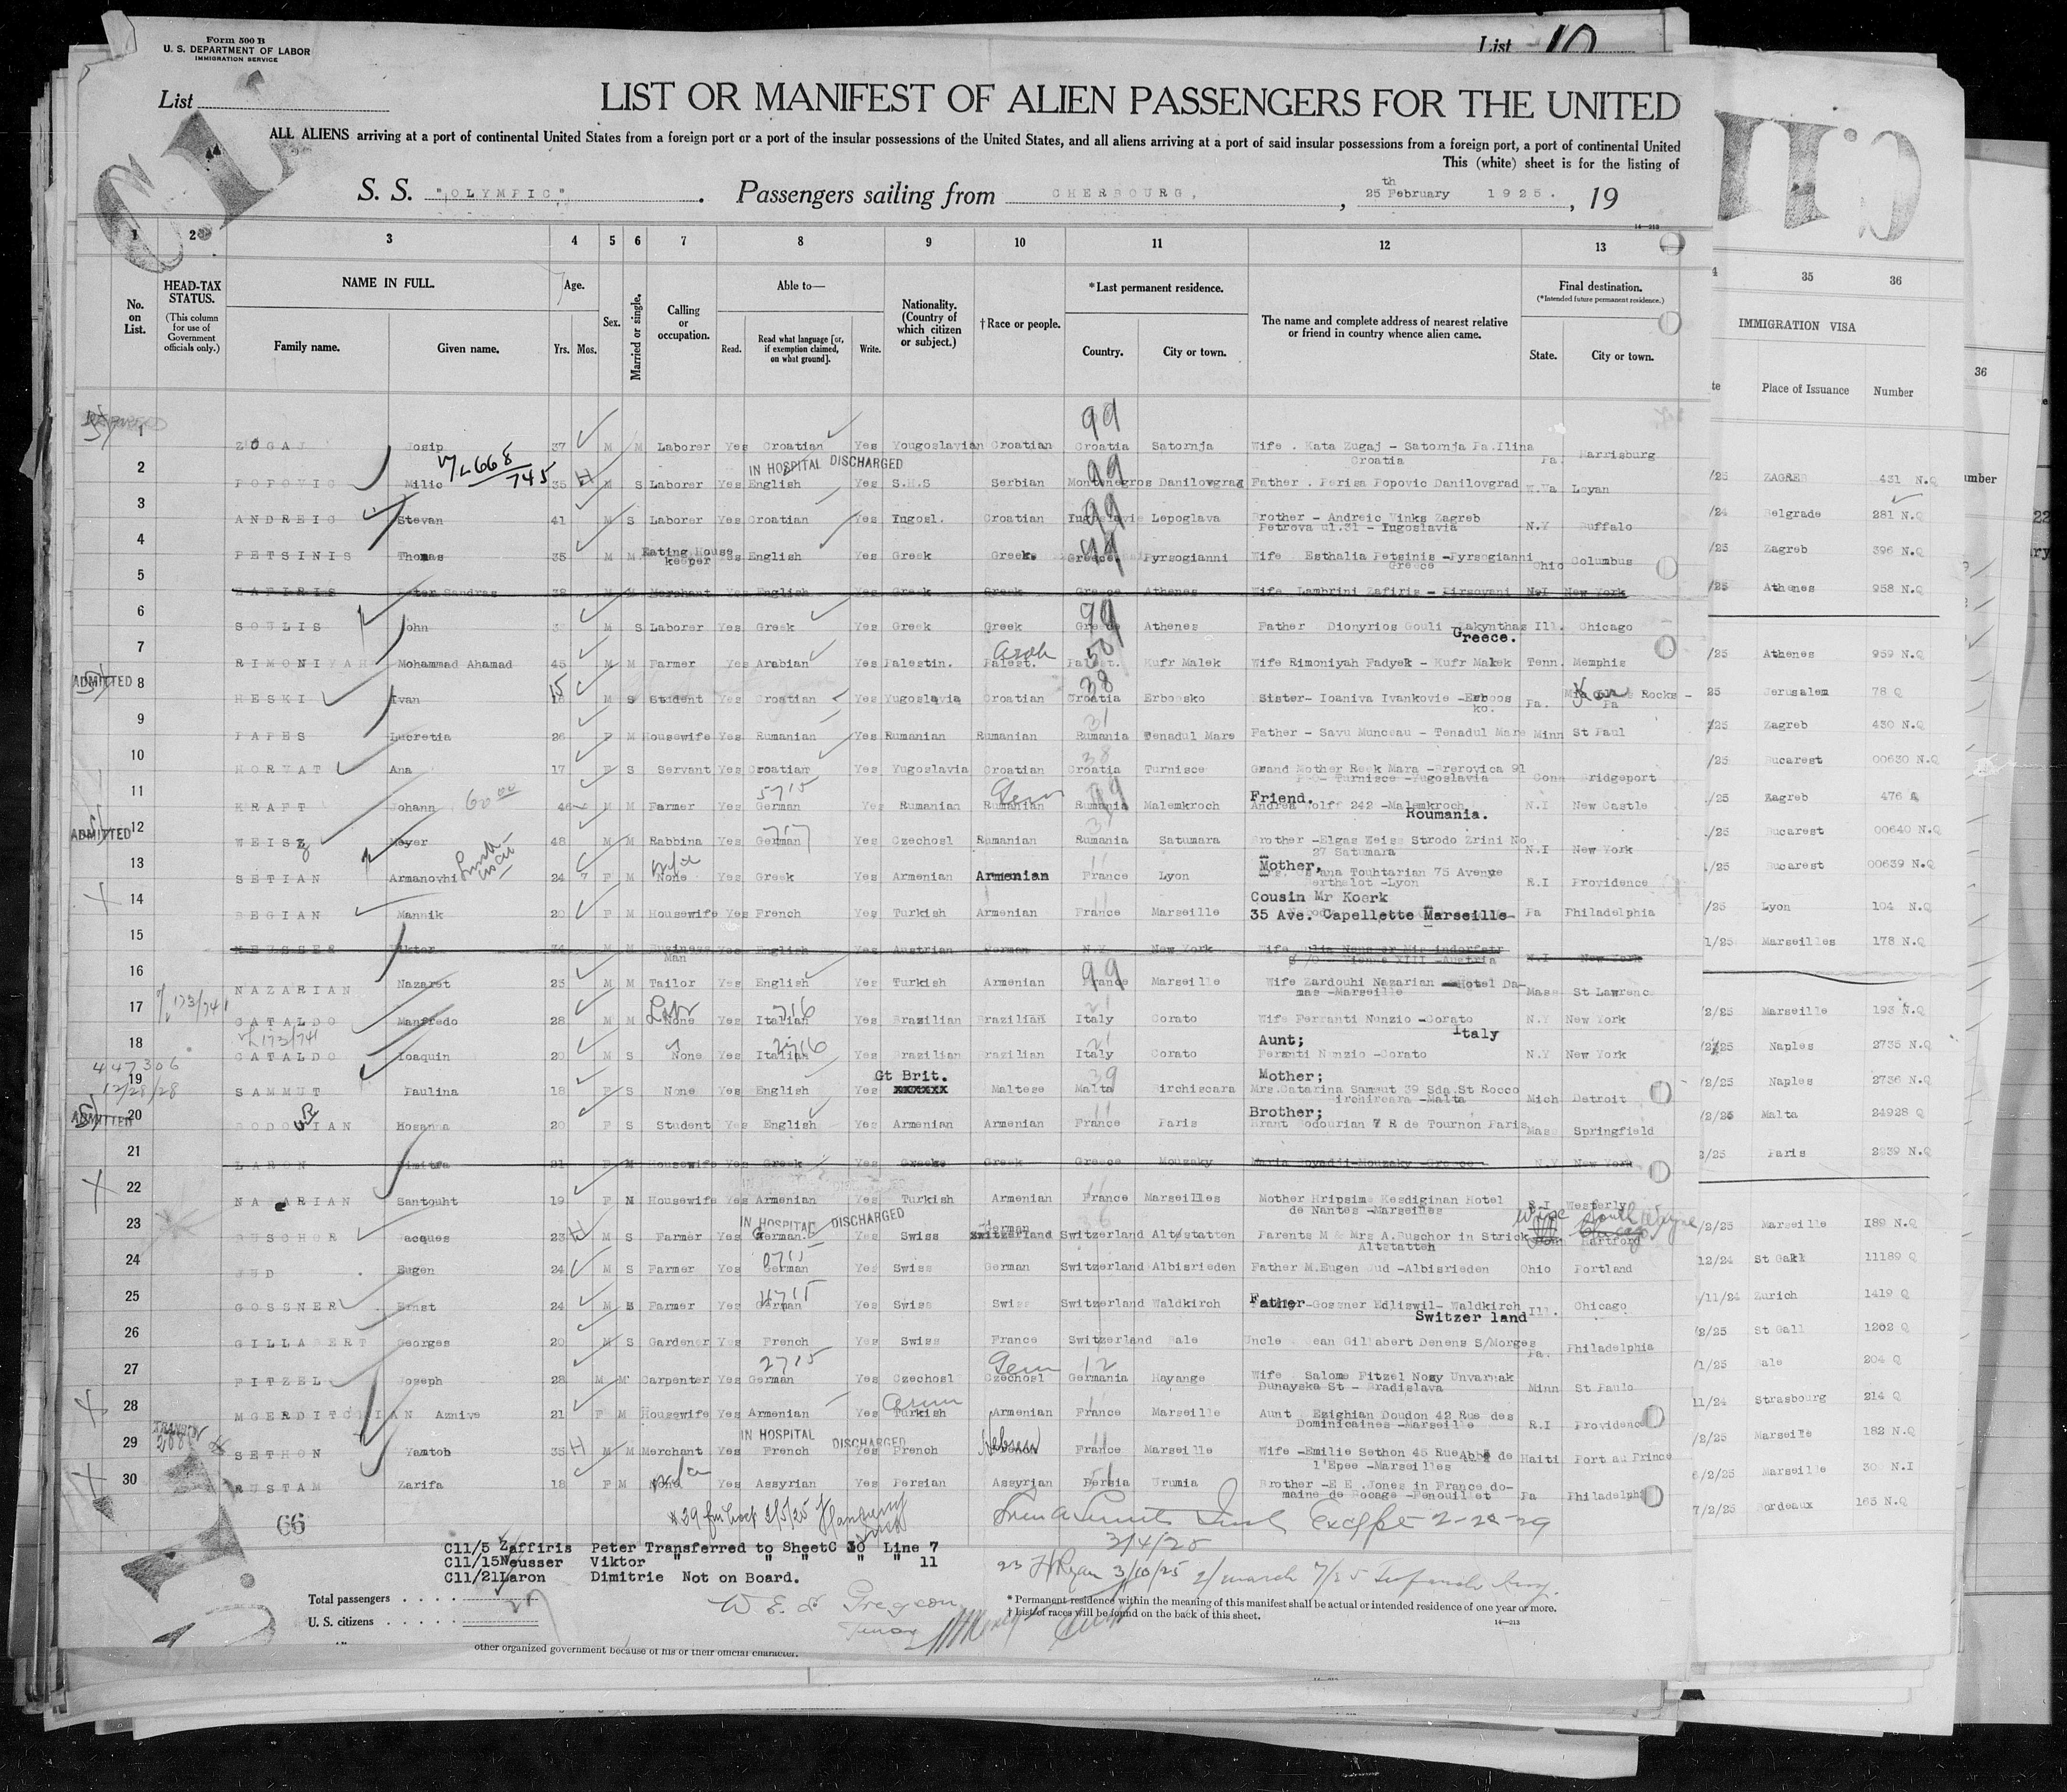 Form 500 B
U. S. DEPARTMENT OF LABOR
IMMIGRATION SERVICE
List 10
List
LIST OR MANIFEST OF ALIEN PASSENGERS FOR THE UNITED
ALL ALIENS arriving at a port of continental United States from a foreign port or a port of the insular possessions of the United States, and all aliens arriving at a port of said insular possessions from a foreign port, a port of continental United
This (white) sheet is for the listing of
S. S. "OLYMPIC", Passengers sailing from CHERBOURG, 25th February 1925. , 19
14—213
1 2 3 4 5 6 7 8 9 10 11 12 13 35 36
No. on List.
HEAD-TAX STATUS. (This column for use of Government officials only.)
NAME IN FULL.
Family name. Given name.
Age. Yrs. Mos.
Sex.
Married or single.
Calling or occupation.
Able to—
Read. Read what language [or, if exemption claimed, on what ground]. Write.
Nationality. (Country of which citizen or subject.)
† Race or people.
* Last permanent residence.
Country. City or town.
The name and complete address of nearest relative or friend in country whence alien came.
Final destination.
(* Intended future permanent residence.)
State. City or town.
IMMIGRATION VISA
Place of Issuance Number
36
1 ZOGAJ Josip 37 M Laborer Yes Croatian Yes Yougoslavian Croatian Croatia Satornja Wife . Kata Zugaj - Satornja Pa.Ilina Croatia Pa. Harrisburg
99
IN HOSPITAL DISCHARGED
2 POPOVIC Milic 35 M S Laborer Yes English Yes S.H.S Serbian Montenegros Danilovgrad Father . Perisa Popovic Danilovgrad W.Va Loyan
/25 ZAGREB 431 N.Q
3 ANDREIC Stevan 41 M S Laborer Yes Croatian Yes Yugosl. Croatian Lepoglava Brother - Andreic Vinks Zagreb Petrova ul.31 - Yugoslavia N.Y Buffalo
/24 Belgrade 281 N.Q
4 PETSINIS Thomas 35 M M Eating House keeper Yes English Yes Greek Greek Greece Pyrsogianni Wife Esthalia Petsinis -Pyrsogianni Greece Ohio Columbus
/25 Zagreb 396 N.Q
5 ZAFIRIS 38 M M Merchant Yes English Yes Greek Greek Greece Athenes Wife Lambrini Zafiris - Pirsovani New York
/25 Athenes 958 N.Q
6 SOULIS John M S Laborer Yes Greek Yes Greek Greek Greece Athenes Father Dionyrios Gouli Zakynthas Greece. Ill. Chicago
7 RIMONIYAH Mohammad Ahamad 45 M M Farmer Yes Arabian Yes Palestin. Palest. Kufr Malek Wife Rimoniyah Fadyek - Kufr Malek Tenn. Memphis
/25 Athenes 959 N.Q
ADMITTED
8 HESKI Ivan M S Student Yes Croatian Yes Yugoslavia Croatian Croatia Erbossko Sister- Ioaniva Ivankovie - Pa. Rocks - Pa
25 Jerusalem 78 Q
9 PAPES Lucretia 26 F M Housewife Yes Rumanian Yes Rumanian Rumanian Rumania Tenadul Mare Father - Savu Munceau - Tenadul Mare Minn St Paul
/25 Zagreb 430 N.Q
10 HORVAT Ana 17 F S Servant Yes Croatian Yes Yugoslavia Croatian Croatia Turnisce Grand Mother Reek Mara -Brerovica 91 Turnisce -Yugoslavia Conn Bridgeport
/25 Bucarest 00630 N.Q
11 KRAFT Johann 46 M M Farmer Yes German Yes Rumanian Rumanian Rumania Malemkroch Friend. Andrea Wolff 242 -Malemkroch Roumania. N.I New Castle
/25 Zagreb 476
ADMITTED
12 WEISZ Meyer 48 M M Rabbina Yes German Yes Czechosl Rumanian Rumania Satumara Brother -Elgas Weiss Strodo Zrini No 27 Satumara N.I New York
/25 Bucarest 00640 N.Q
13 SETIAN Armanovhi 24 7 F M None Yes Greek Yes Armenian Armenian France Lyon Mother. Touhtarian 75 Avenue Berthelot -Lyon R.I Providence
/25 Bucarest 00639 N.Q
14 BEGIAN Mannik 20 F M Housewife Yes French Yes Turkish Armenian France Marseille Cousin Mr Koerk 35 Ave. Capellette Marseille- Pa Philadelphia
/25 Lyon 104 N.Q
15 NEUSSER Viktor 34 M M Business Man Yes English Yes Austrian German N.Y New York Wife Vienne XIII -Austria N.I New York
1/25 Marseilles 178 N.Q
16 NAZARIAN Nazaret 25 M M Tailor Yes English Yes Turkish Armenian France Marseille Wife Zardouhi Nazarian -Hotel Damas -Marseille Mass St Lawrenc
17 CATALDO Manfredo 28 M M None Yes Italian Yes Brazilian Brazilian Italy Corato Wife Ferranti Nunzio -Corato Italy N.Y New York
/2/25 Marseille 193 N.Q
18 CATALDO Ioaquin 20 M S None Yes Italian Yes Brazilian Brazilian Italy Corato Aunt; Feranti Nunzio -Corato N.Y New York
Naples 2735 N.Q
447306
12/28/28
19 SAMMUT Paulina 18 F S None Yes English Yes Gt Brit. Maltese Malta Birchiscara Mother; Mrs.Catarina Sammut 39 Sda.St Rocco irchircara -Malta Mich Detroit
/2/25 Naples 2736 N.Q
ADMITTED
20 Rosanna 20 F S Student Yes English Yes Armenian Armenian France Paris Brother; Hrant Bodourian 7 R de Tournon Paris Mass Springfield
/2/25 Malta 24928 Q
21 LARON Dimitra 21 F M Housewife Yes Greek Yes Greeke Greek Greece Mouzaky N.Y New York
2/25 Paris 2939 N.Q
22 Santouht 19 F M Housewife Yes Armenian Yes Turkish Armenian France Marseilles Mother Hripsime Kesdiginan Hotel de Nantes -Marseilles R.I Westerly
IN HOSPITAL DISCHARGED
23 BUSCHOR Jacques 23 M S Farmer Yes German. Yes Swiss German Switzerland Altstatten Parents M & Mrs A.Buschor in Strick Altstatten Hartford
/2/25 Marseille 189 N.Q
24 JUD Eugen 24 M S Farmer Yes German Yes Swiss German Switzerland Albisrieden Father M.Eugen Jud -Albisrieden Ohio Portland
12/24 St Gall 11189 Q
25 GOSSNER Ernst 24 M S Farmer Yes German Yes Swiss Swiss Switzerland Waldkirch Father -Gossner Edliswil- Waldkirch Switzer land Ill. Chicago
/11/24 Zurich 1419 Q
26 GILLABERT Georges 20 M S Gardener Yes French Yes Swiss France Switzerland Bale Uncle Jean Gillabert Denens S/Morges Pa. Philadelphia
/2/25 St Gall 1202 Q
27 FITZEL Joseph 28 M M Carpenter Yes German Yes Czechosl Czechosl Germania Hayange Wife Salome Fitzel Nozy Unvarnak Dunayska St - Bradislava Minn St Paulo
/1/25 Bale 204 Q
28 MGERDITCHIAN Aznive 21 F M Housewife Yes Armenian Yes Turkish Armenian France Marseille Aunt Ezighian Doudon 42 Rue des Dominicaines -Marseille R.I Providence
11/24 Strasbourg 214 Q
IN HOSPITAL DISCHARGED
29 SETHON Yamtob 35 M M Merchant Yes French Yes French Hebrew France Marseille Wife -Emilie Sethon 45 Rue Abbé de l'Epee -Marseilles Haiti Port au Prince
/2/25 Marseille 182 N.Q
30 RUSTAM Zarifa 18 F M None Yes Assyrian Yes Persian Assyrian Persia Urumia Brother -E E .Jones in France domaine de Bocage -Fenouillet Pa Philadelphi
6/2/25 Marseille 30 N.I
7/2/25 Bordeaux 165 N.Q
66
3/4/25
C11/5 Zaffiris Peter Transferred to Sheet C 30 Line 7
C11/15 Neusser Viktor " " " " 11
C11/21 Laron Dimitrie Not on Board.
Total passengers . . . .
U. S. citizens . . . . .
* Permanent residence within the meaning of this manifest shall be actual or intended residence of one year or more.
† List of races will be found on the back of this sheet.
14—213
other organized government because of his or their official character.